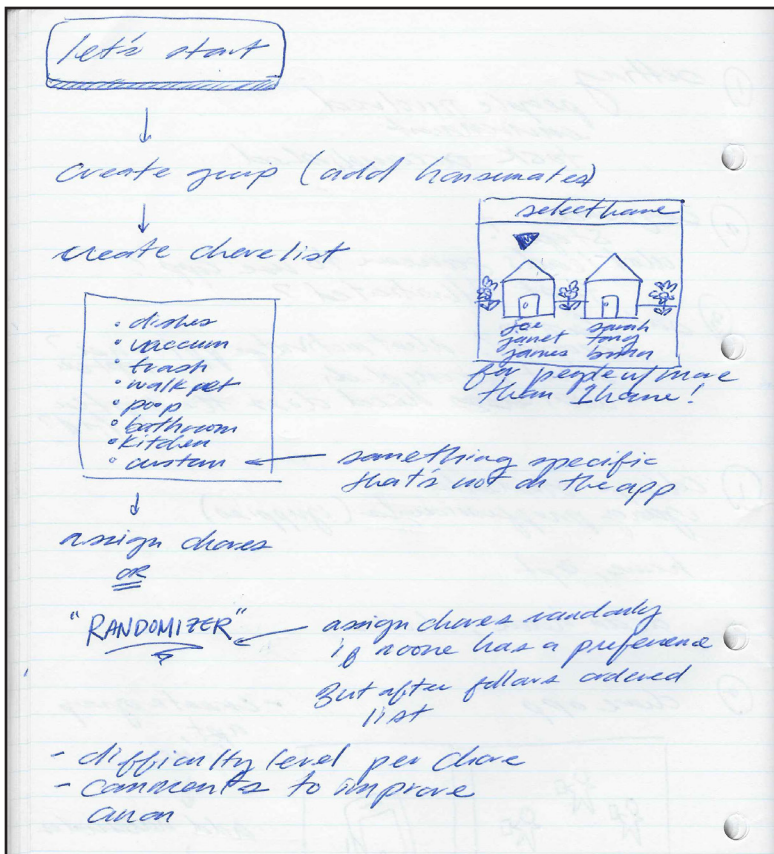 let's start
create group (add housemates)
create chore list
select home
joe sarah
janet tony
james
for people w/ more
than 1 home!
• dishes
• vaccum
• trash
• walk pet
• poop
• bathroom
• kitchen
• custom
something specific
that's not on the app
assign chores
OR
"RANDOMIZER"
assign chores randomly
if noone has a preference
But after follows ordered
list
- difficulty level per chore
- comments to improve
anon